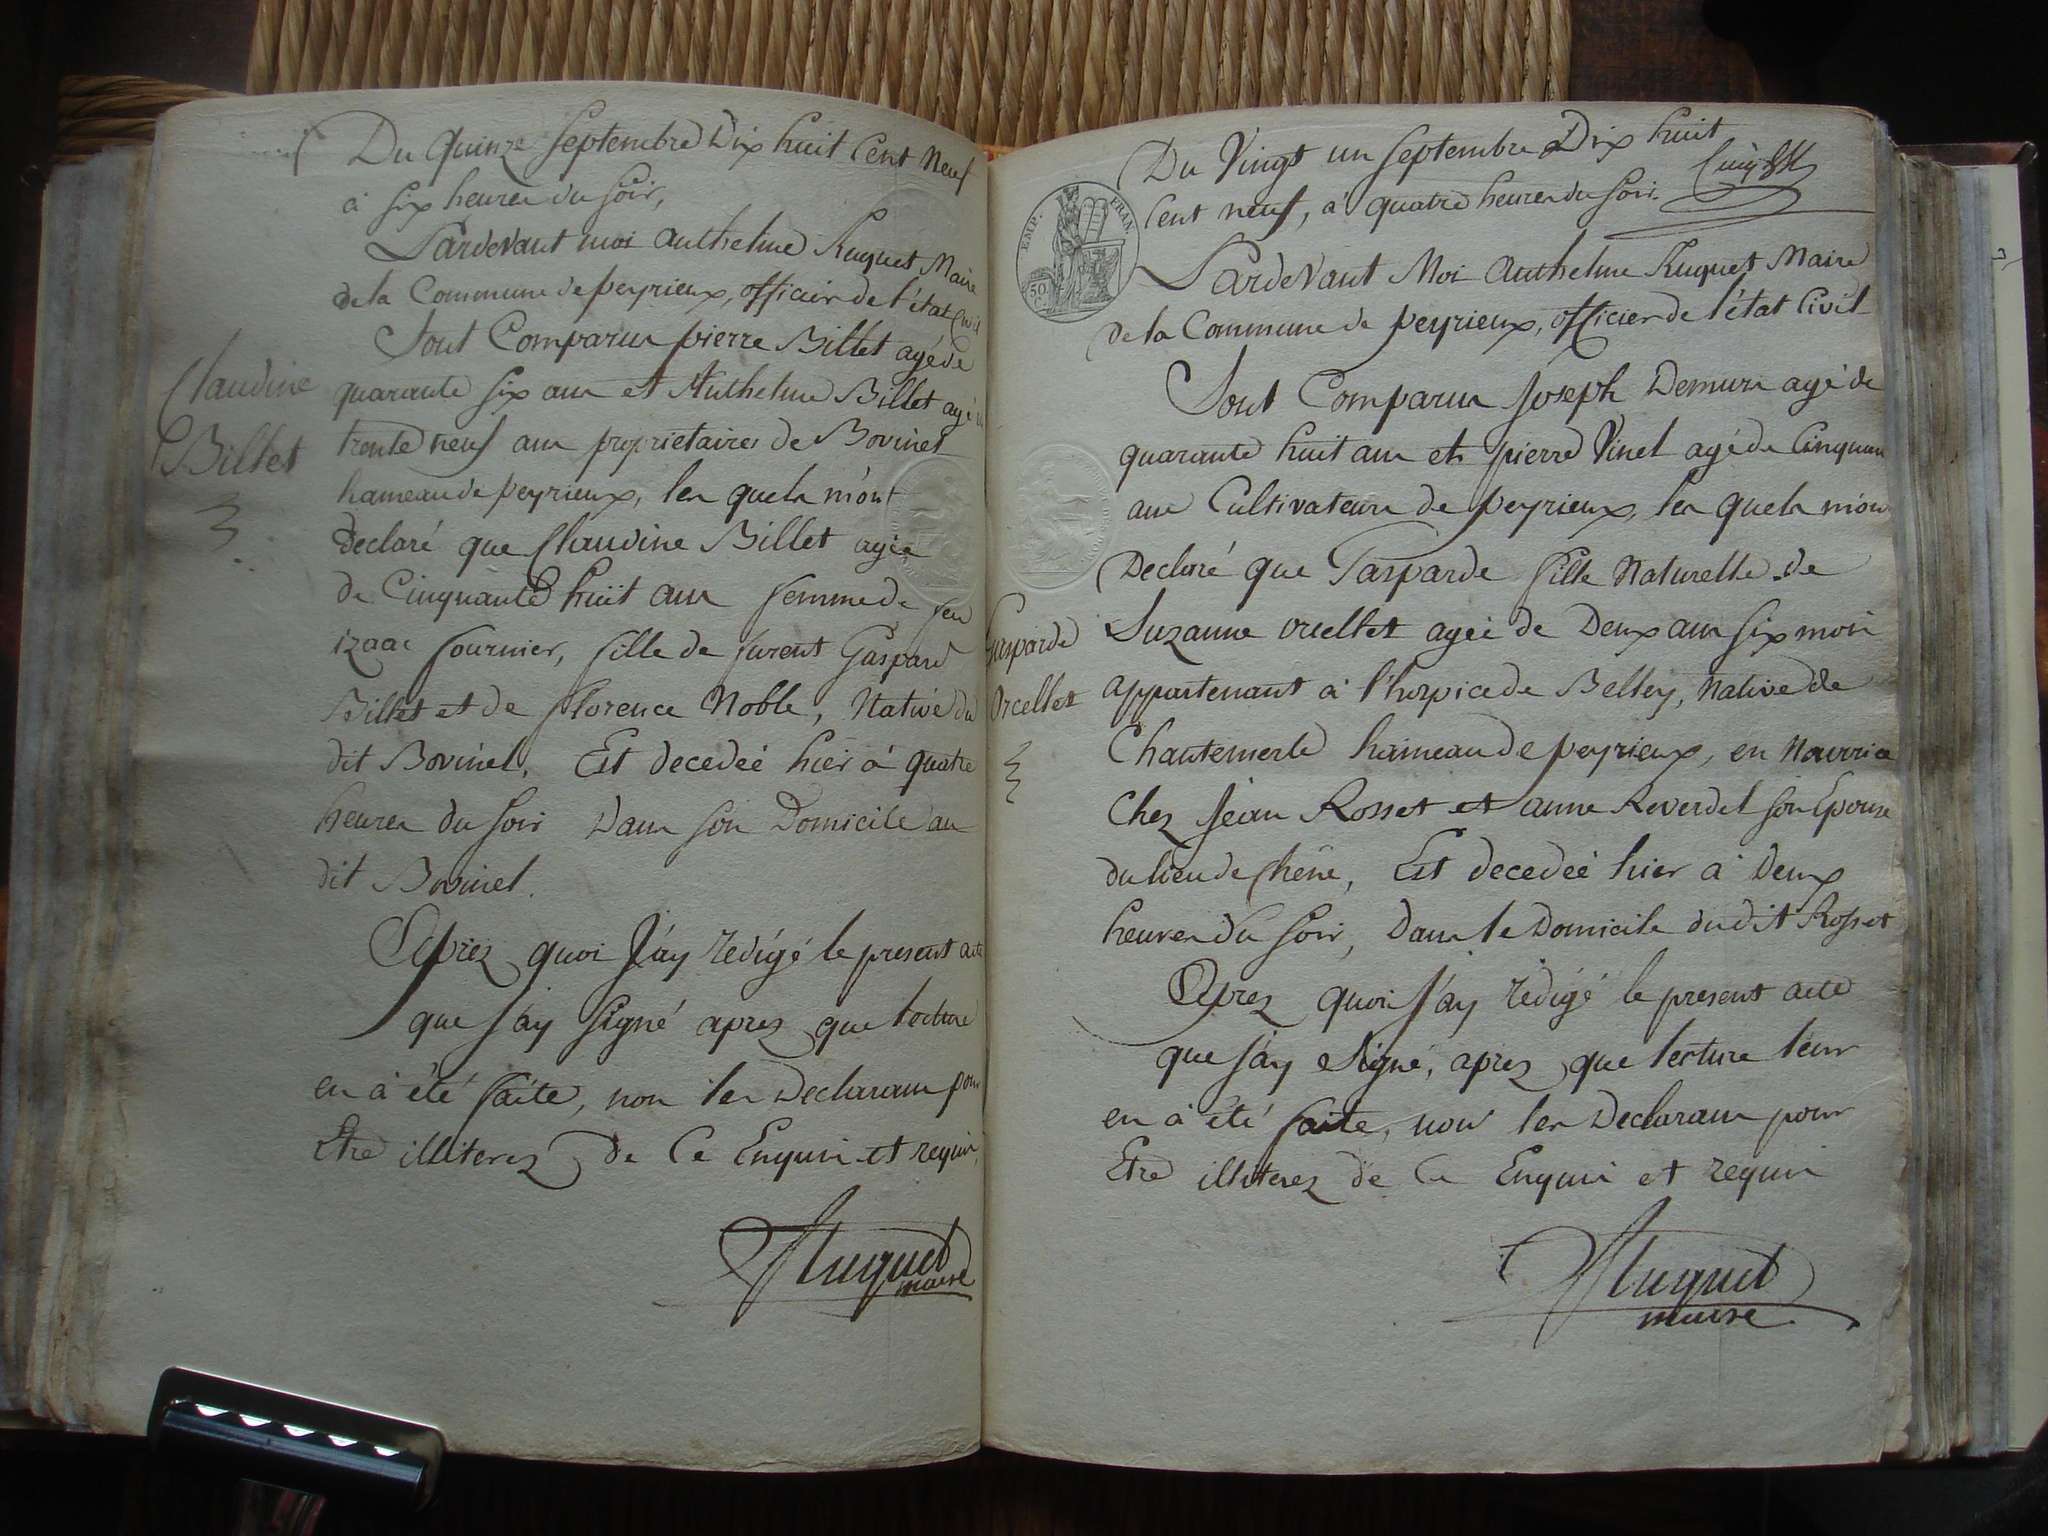 Du Quinze Septembre Dix huit Cent Neuf
à six heures du soir,
Pardevant moi Anthelme Huguet Maire
de la Commune de peyrieux, officier de l'état Civil
Sont Comparus pierre Billet agé de
quarante six ans et Anthelme Billet agé de
trente neuf ans proprietaires de Bovinel
hameau de peyrieux, les quels m'ont
Declaré que Claudine Billet agée
de Cinquante huit ans femme de feu
izaac fournier, fille de furent Gaspard
Billet et de florence Noble, Native du
dit Bovinel, Est decedée hier à quatre
heures du soir Dans son Domicile au
dit Bovinel.
Aprez quoi J'ay redigé le present acte
que J'ay signé aprez que lecture
en à été faite, non les Declarans pour
Etre illiterez de Ce Enquis et requis,
Huguet
maire
Claudine
Billet
Du Vingt un Septembre Dix huit
Cent neuf, à quatre heures du soir.
EMP. FRAN.
50
Pardevant Moi Anthelme Huguet Maire
de la Commune de peyrieux, officier de l'état Civil
Sont Comparus Joseph Demurs agé de
quarante huit ans et pierre Vinel agé de Cinquante
ans Cultivateurs de peyrieux, les quels m'ont
Declaré que Gasparde fille Naturelle de
Suzanne orcellet agée de Deux ans six mois
appartenant à l'hospice de Belley, Native de
Chantemerle hameau de peyrieux, en Nourrice
Chez Jean Rosset et anne Reverdel son Epouse
du lieu de Chêne, Est decedée hier à Deux
heures du soir, Dans le Domicile du dit Rosset
Aprez quoi J'ay redigé le present acte
que J'ay signé, aprez que lecture leur
en à été faite, non les Declarans pour
Etre illiterez de Ce Enquis et requis
Huguet
maire
Gasparde
Orcellet